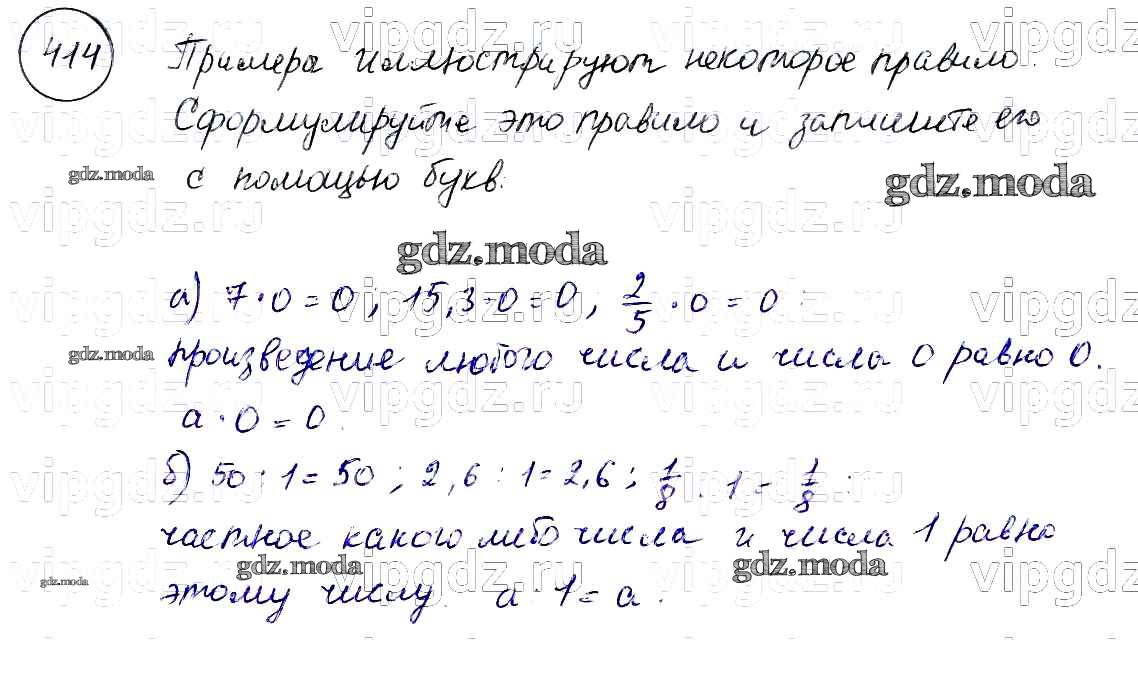 414
Примеры иллюстрируют некоторое правило.
Сформулируйте это правило и запишите его
с помощью букв.
а) 7 · 0 = 0 ; 15,3 · 0 = 0 , 2/5 · 0 = 0 .
произведение любого числа и числа 0 равно 0.
а · 0 = 0 .
б) 50 : 1 = 50 ; 2,6 : 1 = 2,6 ; 1/8 : 1 = 1/8 .
частное какого либо числа и числа 1 равно
этому числу. а : 1 = а .
gdz.moda
gdz.moda
gdz.moda
gdz.moda
gdz.moda
gdz.moda
gdz.moda
vipgdz.ru